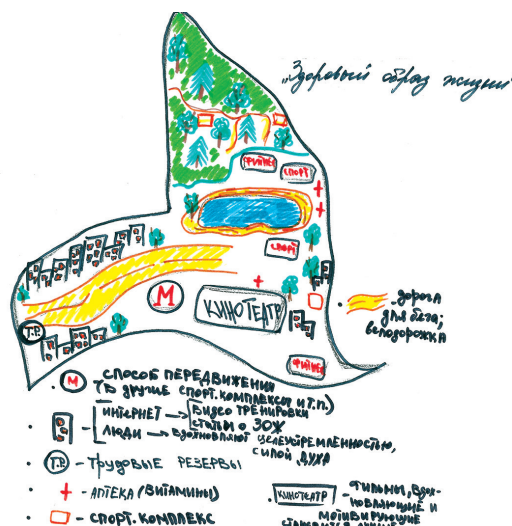 „Здоровый образ жизни"
ФИТНЕС
СПОРТ
СПОРТ
М
КИНОТЕАТР
Т.Р.
ФИТНЕС
- дорога
для бега;
велодорожка
М - СПОСОБ ПЕРЕДВИЖЕНИЯ
(в другие спорт.комплексы и т.п.)
- ИНТЕРНЕТ → ВИДЕО ТРЕНИРОВКИ
СТАТЬИ О ЗОЖ
ЛЮДИ → ВДОХНОВЛЯЮТ ЦЕЛЕУСТРЕМЛЕННОСТЬЮ,
СИЛОЙ ДУХА
Т.Р. - ТРУДОВЫЕ РЕЗЕРВЫ
+ - АПТЕКА (ВИТАМИНЫ)
- СПОРТ. КОМПЛЕКС
КИНОТЕАТР - ФИЛЬМЫ, ВДОХ-
НОВЛЯЮЩИЕ И
МОТИВИРУЮЩИЕ